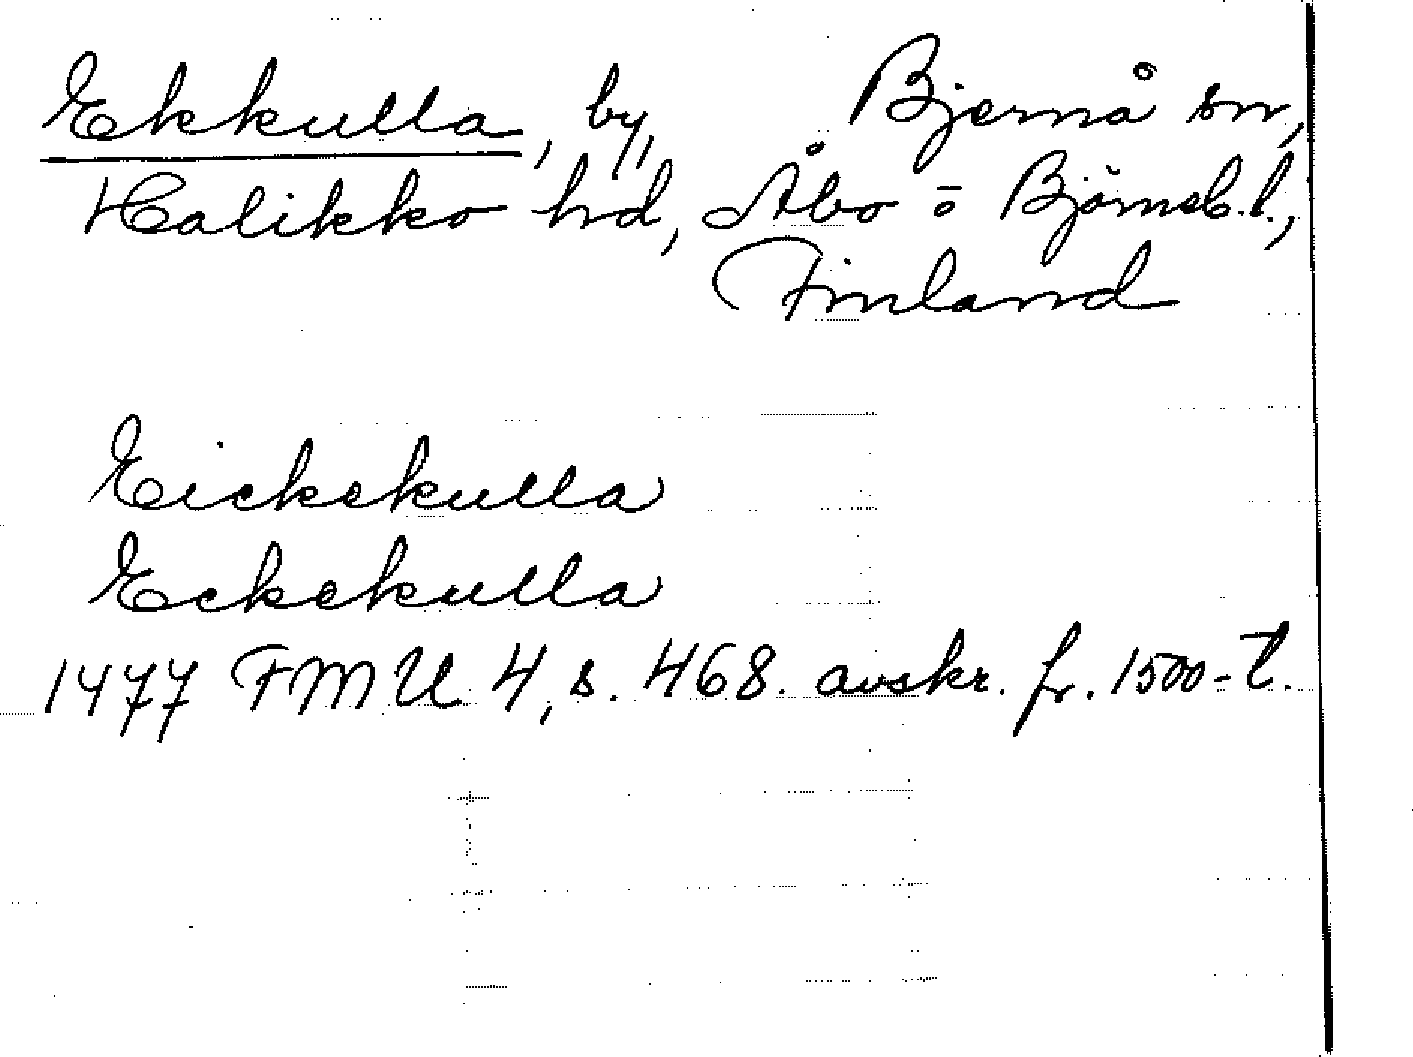 Ekkulla, by, Bjernå sn,
Halikko hd, Åbo o Björneb. l.,
Finland
Eickekulla
Eckekulla
1477 FMU 4, s. 468. avskr. fr. 1500-t.